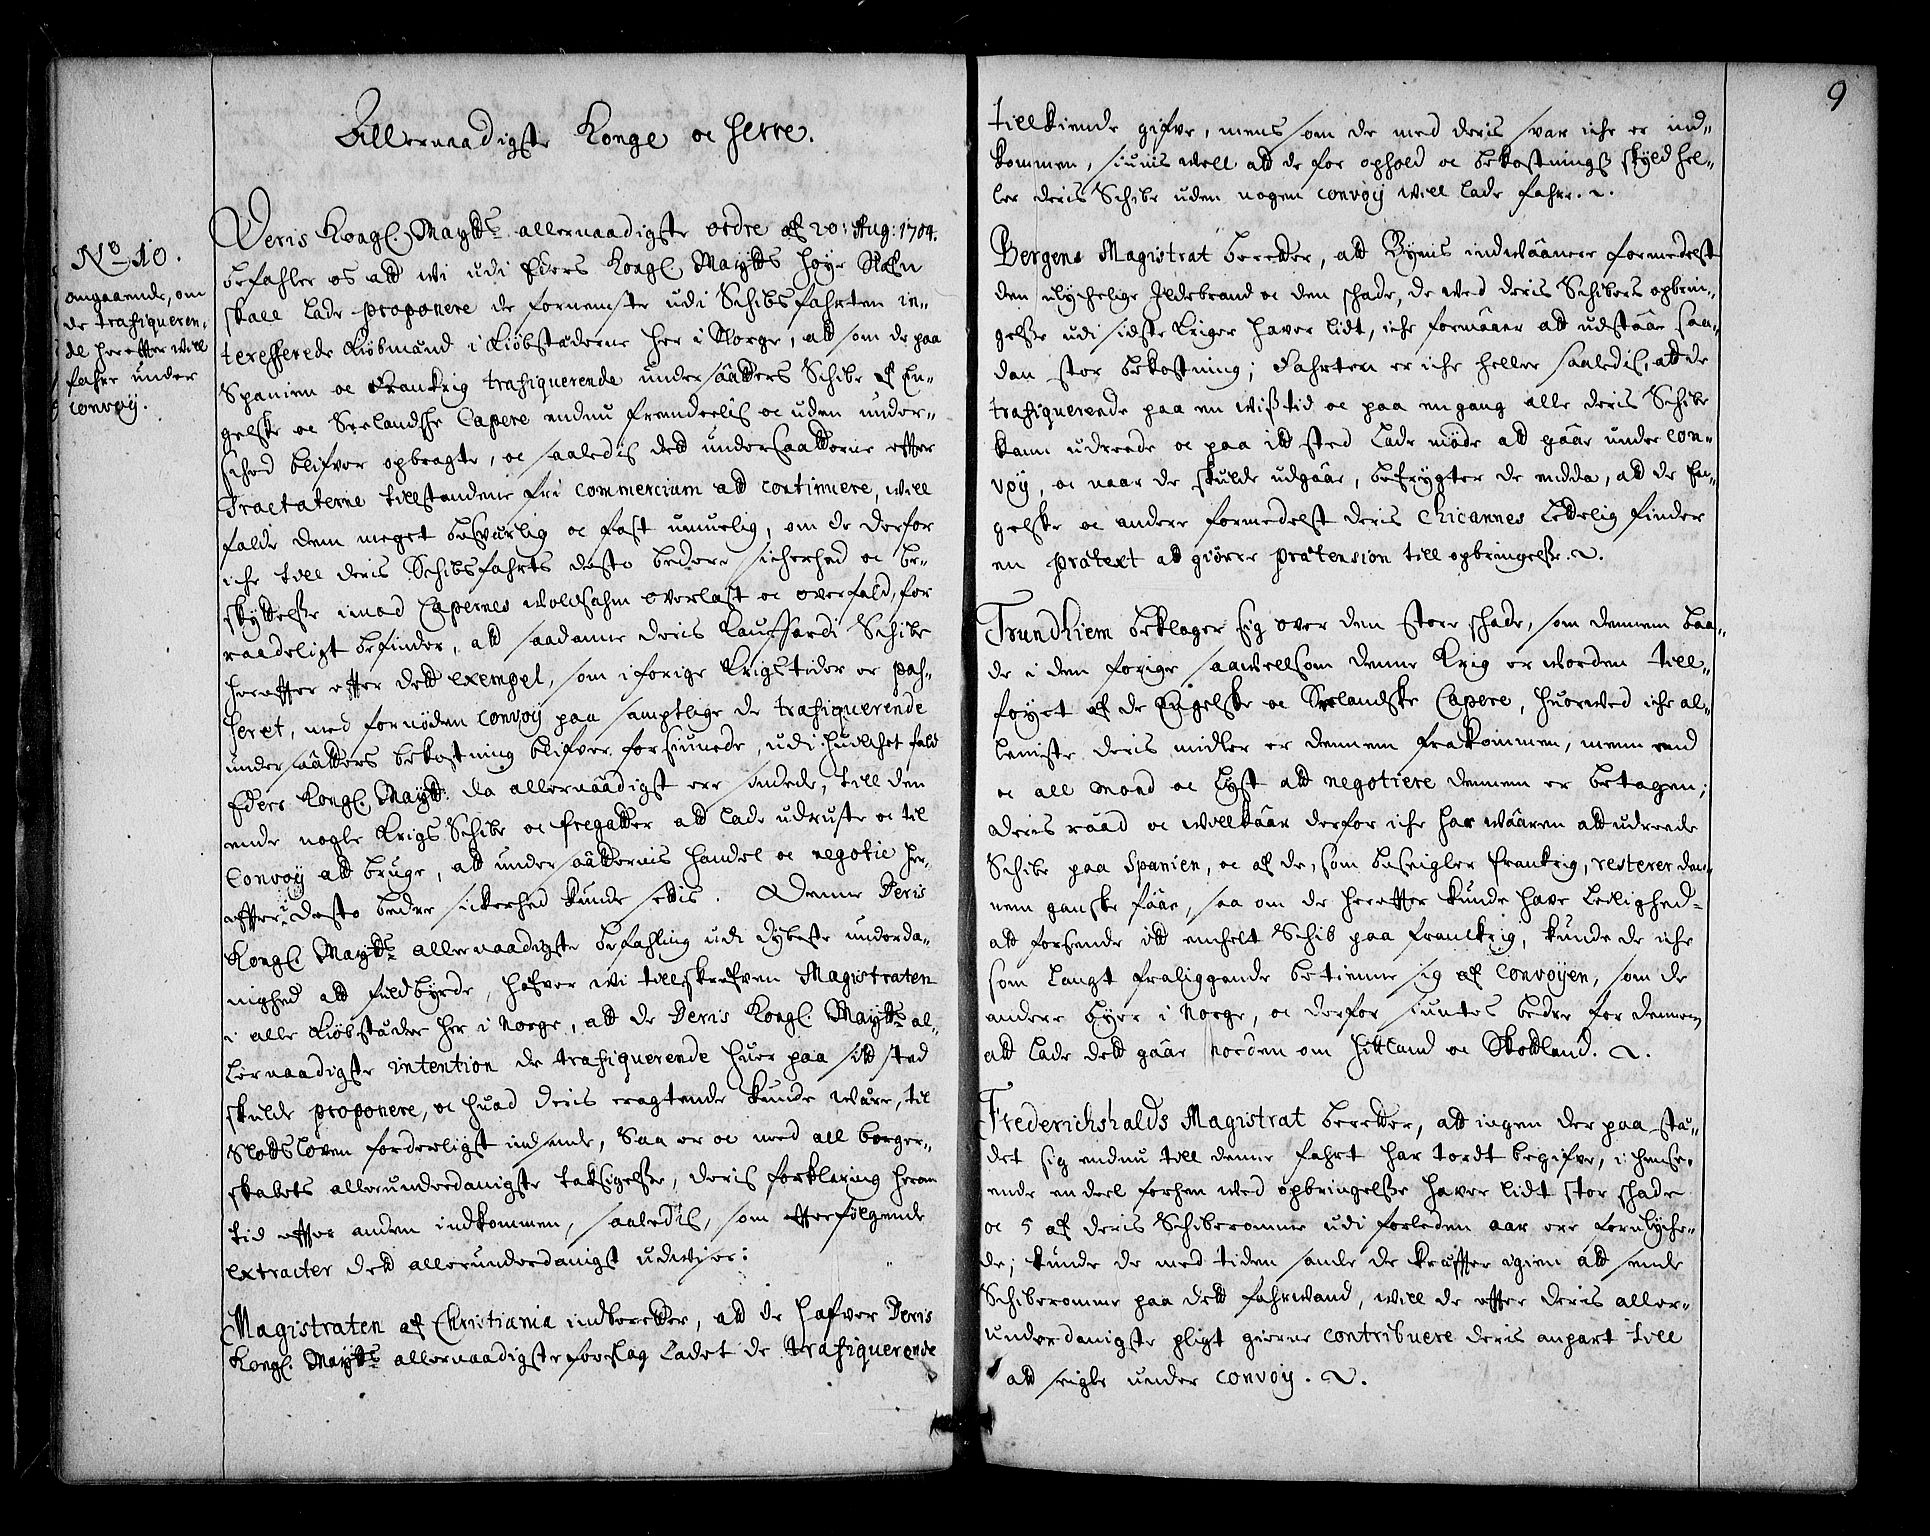 Allernaadigste Konge oc Herre.
No 10.
angaaende, om
de trafiqueren,
de herefter will
fahre under
convoÿ.
Deris Kongl. Maytts allernaadigste ordre af 20: Aug: 1704.
befahler os att wi udi Eders Kongl Maytts høye Nafn
skall lade proponere de fornemste udi Schibsfahrten in-
teresserede Kiøbmænd i Kiøbstæderne her i Norge, att som de paa
Spanien oc Franckrig trafiquerende undersaatters Schibe af En-
gelske oc Seelandsche Capere endnu fremdeelis oc uden under-
scheed blifver opbragte, oc saaledis dett undersaatterne efter
Tractaterne tillstandene fri commercium att continuere, will
falde dem meget besværlig oc fast umuelig, om de derfor
iche till deris Schibsfahrts desto bedere sicherhed oc be-
skyttelse imod Capernes woldsahm overlast oc overfald, for
raadeligt befinder, att saadanne deris Cauffardi Schibe
herefter efter dett exempel, som i forige Krigstider er pas-
seret, med fornøden convoÿ paa samptlige de trafiquerende
undersaatters bekostning blifver forsiunede, udi huilchet fald
Eders Kongl. Maytt: da allernaadigst ere sindede, till den
ende nogle Krigs Schibe oc fregatter att lade udruste oc til
Convoÿ att bruge, att undersaatternis handel oc negotie her-
effter i desto bedre sickerhed kunde settis. Denne Deris
Kongl. Maytts allernaadigste befahling udi dybeste underda-
nighed att fuldbyrde, hafver wi tillskrefven Magistraten
i alle Kiøbstæder her i Norge, att de Deris Kongl. Maytts al-
lernaadigste intention de trafiquerende huer paa sitt sted
skulde proponere, oc huad deris eragtende kunde være, til
Slotsloven forderligst indsende, Saa er oc med all borger-
skabets allerunderdanigste taksigelse, deris forklaring herom
tid efter anden indkommen, saaledis, som efterfølgende
extracter dett allerunderdanigst udwiser:
Magistraten af Christiania indberetter, att de hafver Deris
Kongl. Maytts allernaadigste forslag ladet de trafiquerende
9
tillkiende gifve, mens som de med deris svar iche er ind-
kommen, siunis well att de for ophold oc bekostnings skyld hel-
ler deris Schibe uden nogen convoÿ will lade fahre. &.
Bergens Magistrat beretter, att Byens indwaanere formedelst
den ulychelige Ildebrand oc den schade, de wed deris Schibers opbrin-
gelse udi sidste Kriger haver lidt, iche formaaer att udstaae saa-
dan stor bekostning; Fahrten er iche heller saaledis, att de
trafiquerende paa en wiss tid oc paa engang alle deris Schibe
kann udreede oc paa itt sted lade møde att gaae under con-
voÿ, oc naar de skulde udgaae, befrygter de endda, att de En-
gelske oc andere formedelst deris Chicannes lettelig finder
en prætext att giøre prætension till opbringelse. &.
Trundhiem beklager sig over den store schade, som dennem baa-
de i den forige saawellsom denne Krig er worden till-
føyet af de Engelske oc Seelandske Capere, huorved iche al-
leeniste deris midler er dennem frakommen, menn end
oc all mood oc lyst att negotiere dennem er betagen;
deris raad oc willkaar derfor iche har wæren att udreede
Schibe paa Spanien, oc af de, som beseigler Franckrig, resterer den-
nem ganske faae, saa om de herefter kunde have Leilighed
att forsende itt enchelt Schib paa Franckrig, kunde de iche
som langt fraliggende betienne sig af Convoÿen, som de
andere byer i Norge, oc derfor siuntes bedre for dennem
att lade dett gaae norden om Hitland oc Skottland. &.
Frederichshalds Magistrat beretter, att ingen der paa stæ-
det sig endnu till denne fahrt har tordt begifve, i hense-
ende en deel forhen wed opbringelse haver lidt stor schade
oc 5 af deris Schiberomme udi forleden aar ere forulyche-
de; kunde de med tiden samle de kræfter igien att sende
Schiberomme paa dett fahrwand, will de efter deris aller-
underdanigste pligt gierne contribuere deris anpart till
att seigle under convoÿ. &.